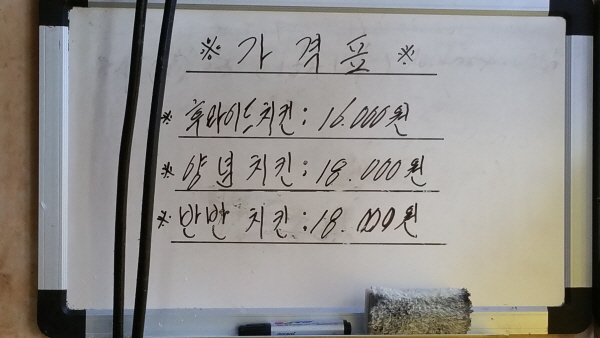 ※ 가격표 ※
※ 후라이드치킨: 16.000원
※ 양념치킨: 18.000원
※ 반반 치킨: 18.000원